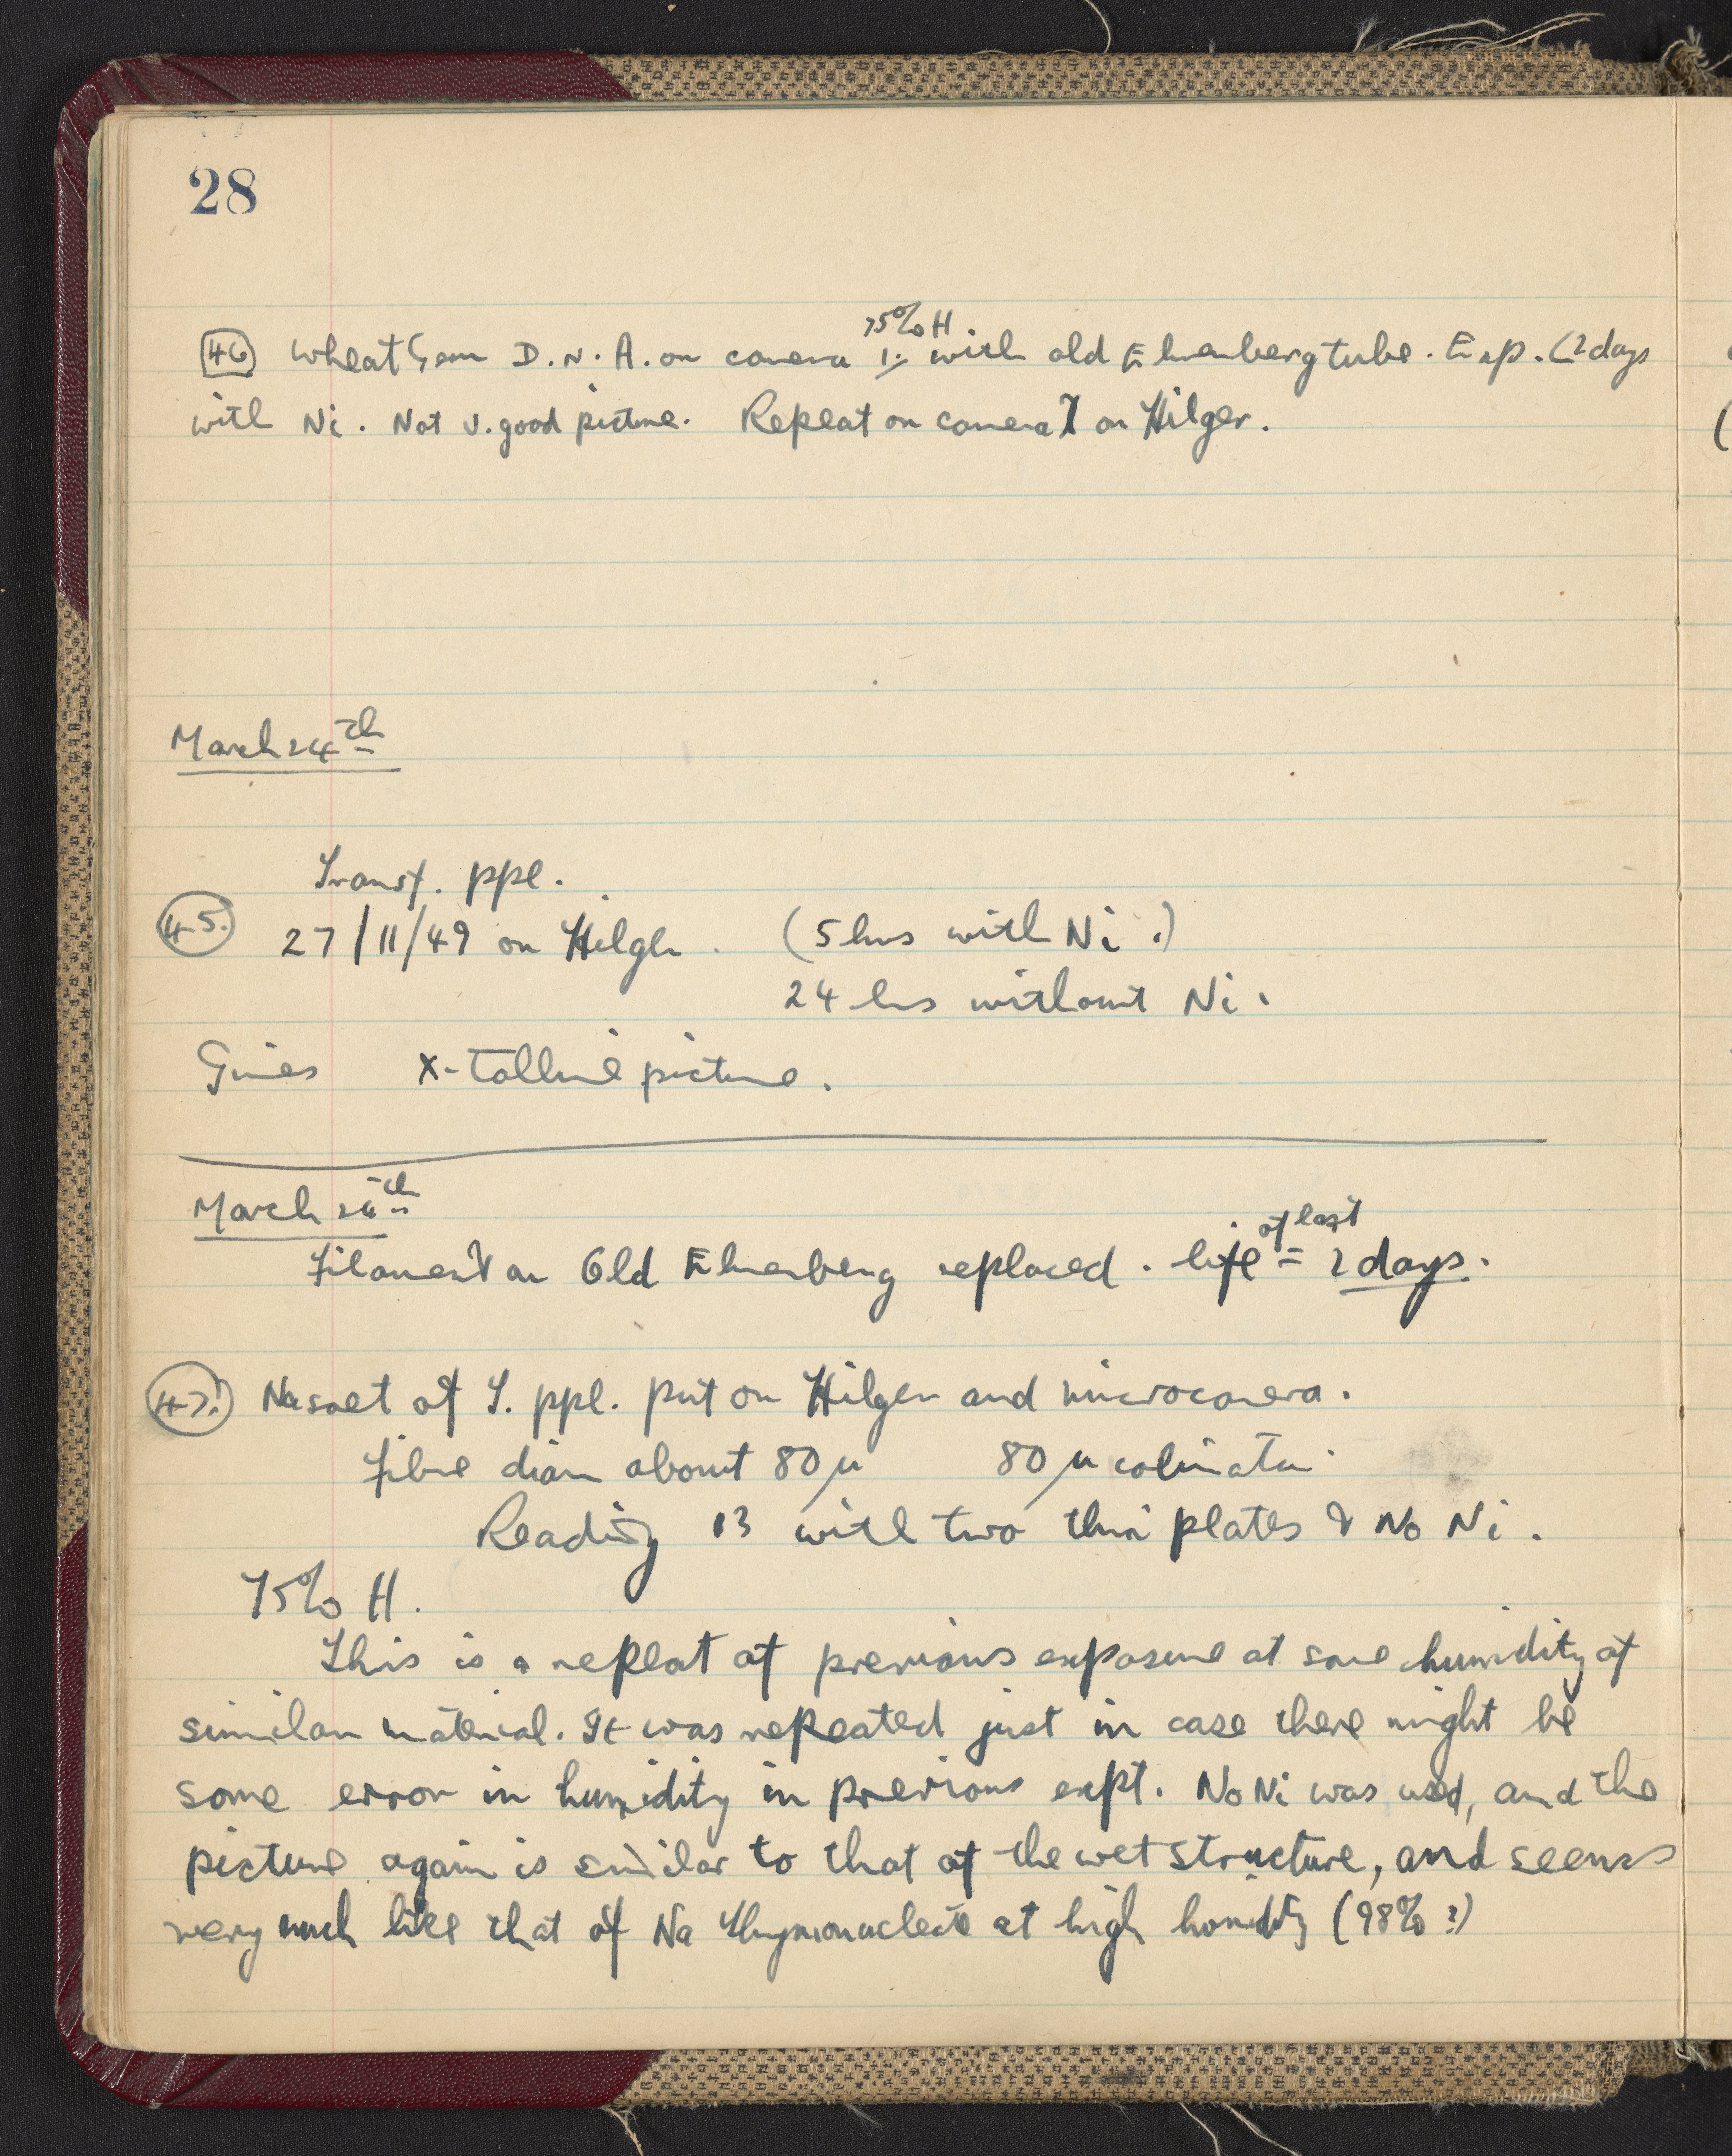 28
75% H
46 Wheat Germ D.N.A. on camera 1 with old Ehrenberg tube. Exp. (2 days
with Ni. Not v. good picture. Repeat on camera 1 on Hilger.
March 24th
Transf. ppl.
45. 27/11/49 on Hilger. (5 hrs with Ni.)
24 hrs without Ni.
Gives X-talline picture.
March 26th
of last
Filament on Old Ehrenberg replaced. life = 2 days.
47. Na salt of T. ppl. put on Hilger and microcamera.
Fibre diam about 80 μ 80 μ colimator
Reading 13 with two thin plates & No Ni.
75% H.
This is a repeat of previous exposure at same humidity of
similar material. It was repeated just in case there might be
some error in humidity in previous expt. No Ni was used, and the
picture again is similar to that of the wet structure, and seems
very much like that of Na Thymonucleate at high humidity (98% ?)